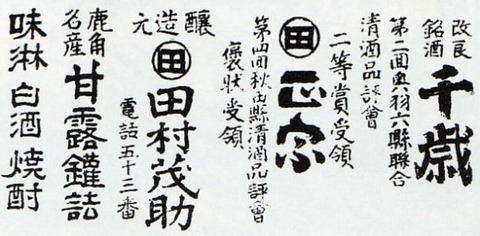 改良
銘酒
千歳
第二回奥羽六縣聯合
清酒品評會
二等賞受領
田
正宗
第四回秋田縣清酒品評會
褒状受領
醸造元
田
田村茂助
電話五十三番
鹿角
名産
甘露罐詰
味淋白酒焼酎